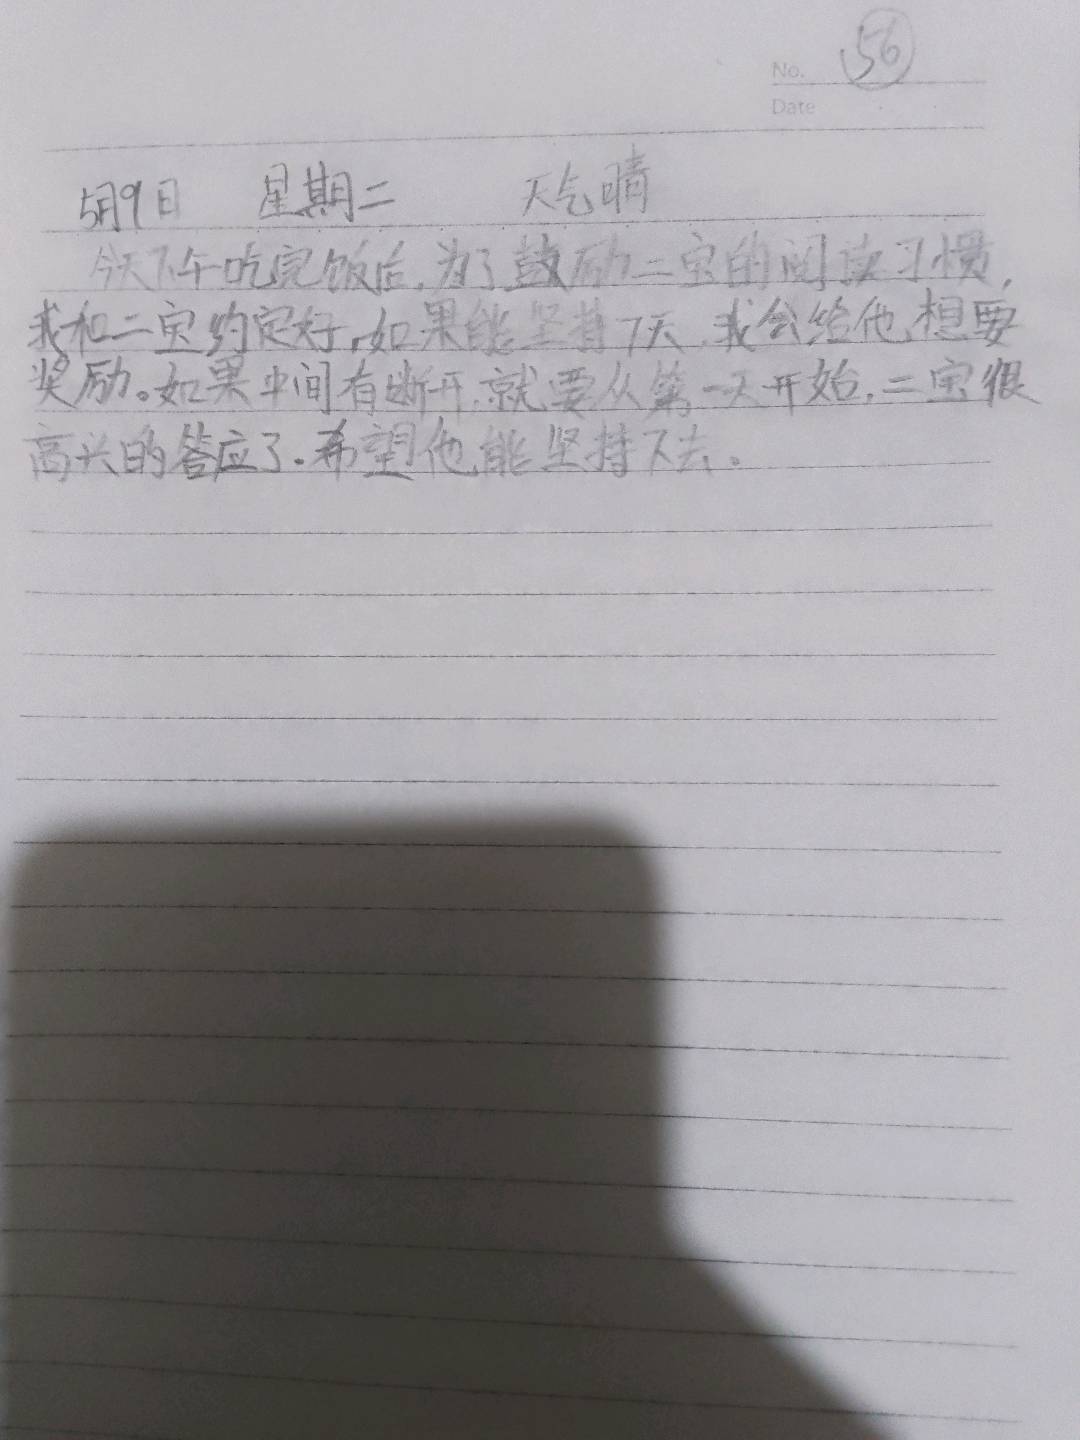 No. 56
Date
5月9日 星期二 天气晴
今天下午吃完饭后,为了鼓励二宝的阅读习惯,
我和二宝约定好,如果能坚持7天,我会给他想要
奖励。如果中间有断开,就要从第一天开始,二宝很
高兴的答应了.希望他能坚持下去。